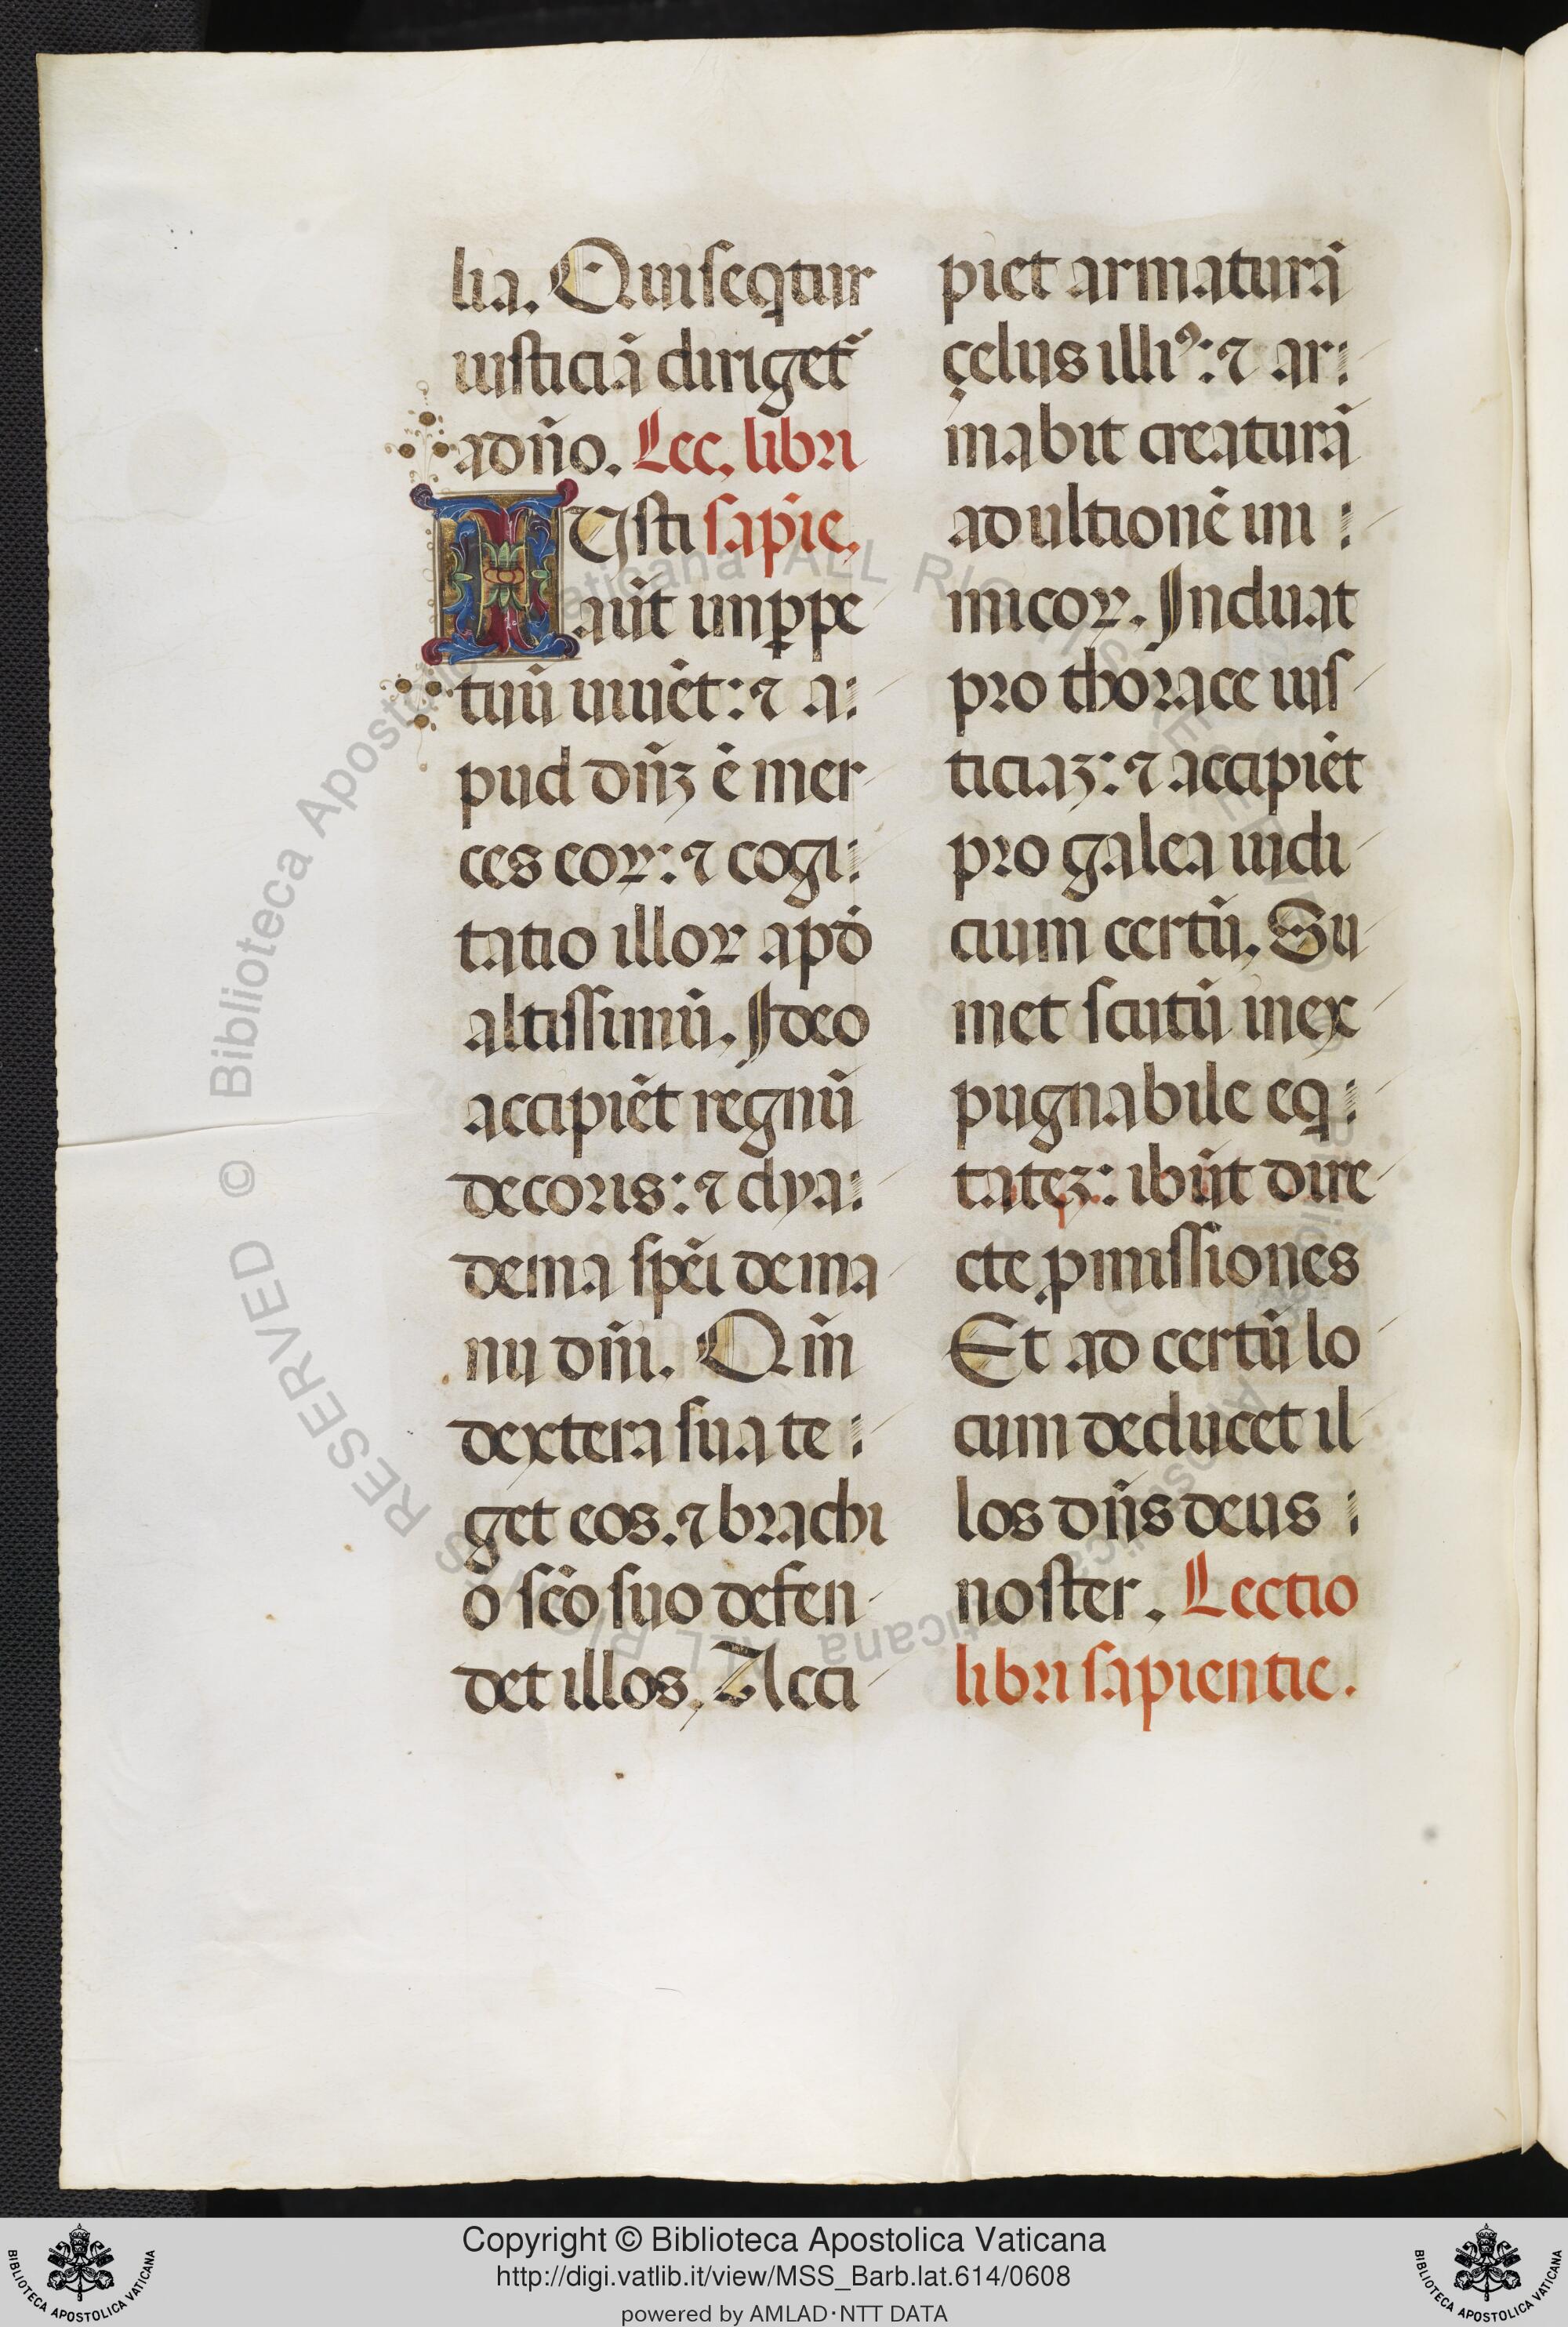 lia. Qui seqtur
iusticiā diriget᷑
a dn̄o. Lec. libri
IUsti sapie.
aūt in ꝑpe
tuū uiuēt: ⁊ a:
pud dn̄ʒ ē mer
ces eoꝝ: ⁊ cogi:
tatio illoꝝ apō
altissimū. Ideo
accipiēt regnū
decoris: ⁊ dya:
dema sp̄ei de ma
nu dn̄i. Qm̄
dextera sua te:
get eos. ⁊ brachi
o sc̄o suo defen
det illos. Acci
piet armaturā
çelus illiꝰ: ⁊ ar:
mabit creaturā
ad ultionē ini:
micoꝝ. Induat
pro thorace ius
ticiaʒ: ⁊ accipiēt
pro galea iudi
cium certū. Su
met scutū inex
pugnabile eq:
tateʒ: ibūt dire
cte ꝓmissiones
Et ad certū lo
cum deducet il
los dn̄s deus:
noster. Lectio
libri sapientie.
© Biblioteca Apostolica Vaticana ALL RIGHTS RESERVED
Copyright © Biblioteca Apostolica Vaticana
http://digi.vatlib.it/view/MSS_Barb.lat.614/0608
powered by AMLAD·NTT DATA
BIBLIOTECA APOSTOLICA VATICANA
BIBLIOTECA APOSTOLICA VATICANA